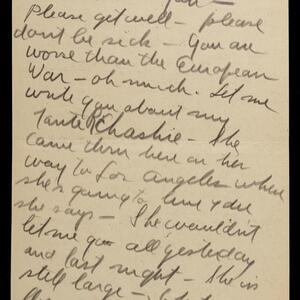 Please get well — please
don't be sick — You are
worse than the European
War — oh much. Let me
write you about my
Tante Chashie — She
came thru here on her
way to Los Angeles where
she's going to live she
she says — She wouldn't
let me go all yesterday
and last night — She is
still large —